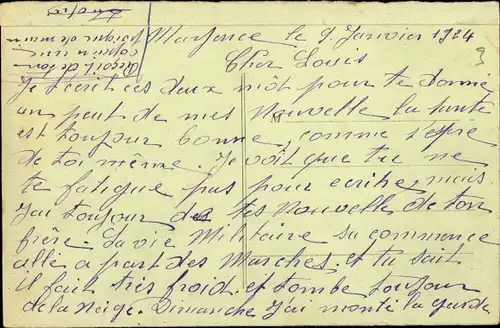 Mayence le 9 Janvier 1924
Cher Louis
Je t'écrit ces deux môt pour te donné
un peut de mes Nouvelle la sente
est toujour bonne, comme j'espre
de toi même. Je voit que tu ne
te fatigue pas pour ecrire, mais
J'ai toujour des tes Nouvelle de ton
frère. La vie Militaire sa commence
allé a part des Marches et tu sait
il fait très froid et tombe toujour
de la Neige. Dimanche J'ai monté la garde
Reçoit de ton
copain une
poigne de main